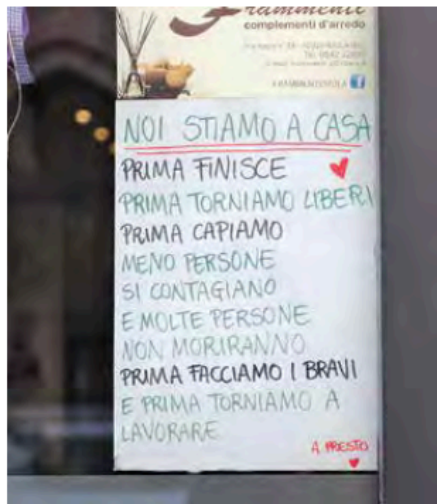 Frammenti
complementi d'arredo
NOI STIAMO A CASA
PRIMA FINISCE
PRIMA TORNIAMO LIBERI
PRIMA CAPIAMO
MENO PERSONE
SI CONTAGIANO
E MOLTE PERSONE
NON MORIRANNO
PRIMA FACCIAMO I BRAVI
E PRIMA TORNIAMO A
LAVORARE
A PRESTO